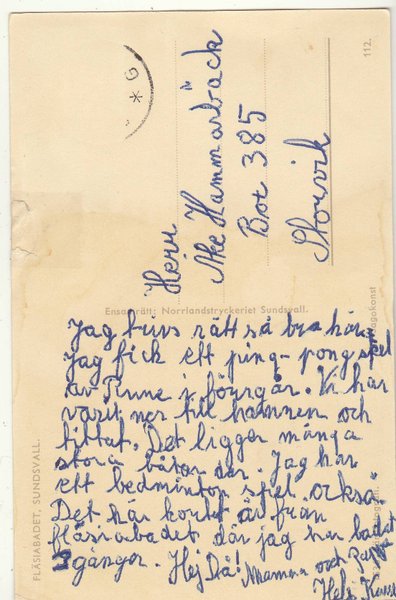 Herr
Åke Hammarbäck
Box 385
Storvik
112.
G
Ensamrätt: Norrlandstryckeriet Sundsvall.
FLÄSIABADET, SUNDSVALL.
Jag trivs rätt så bra här.
Jag fick ett ping-pong spel
av Rune i förrgår. Vi har
varit ner till hamnen och
tittat. Det ligger många
stora båtar där. Jag har
ett bedminton spel också.
Det här kortet är från
fläsiabadet där jag har badat
gånger. Hej Då! Mamma och